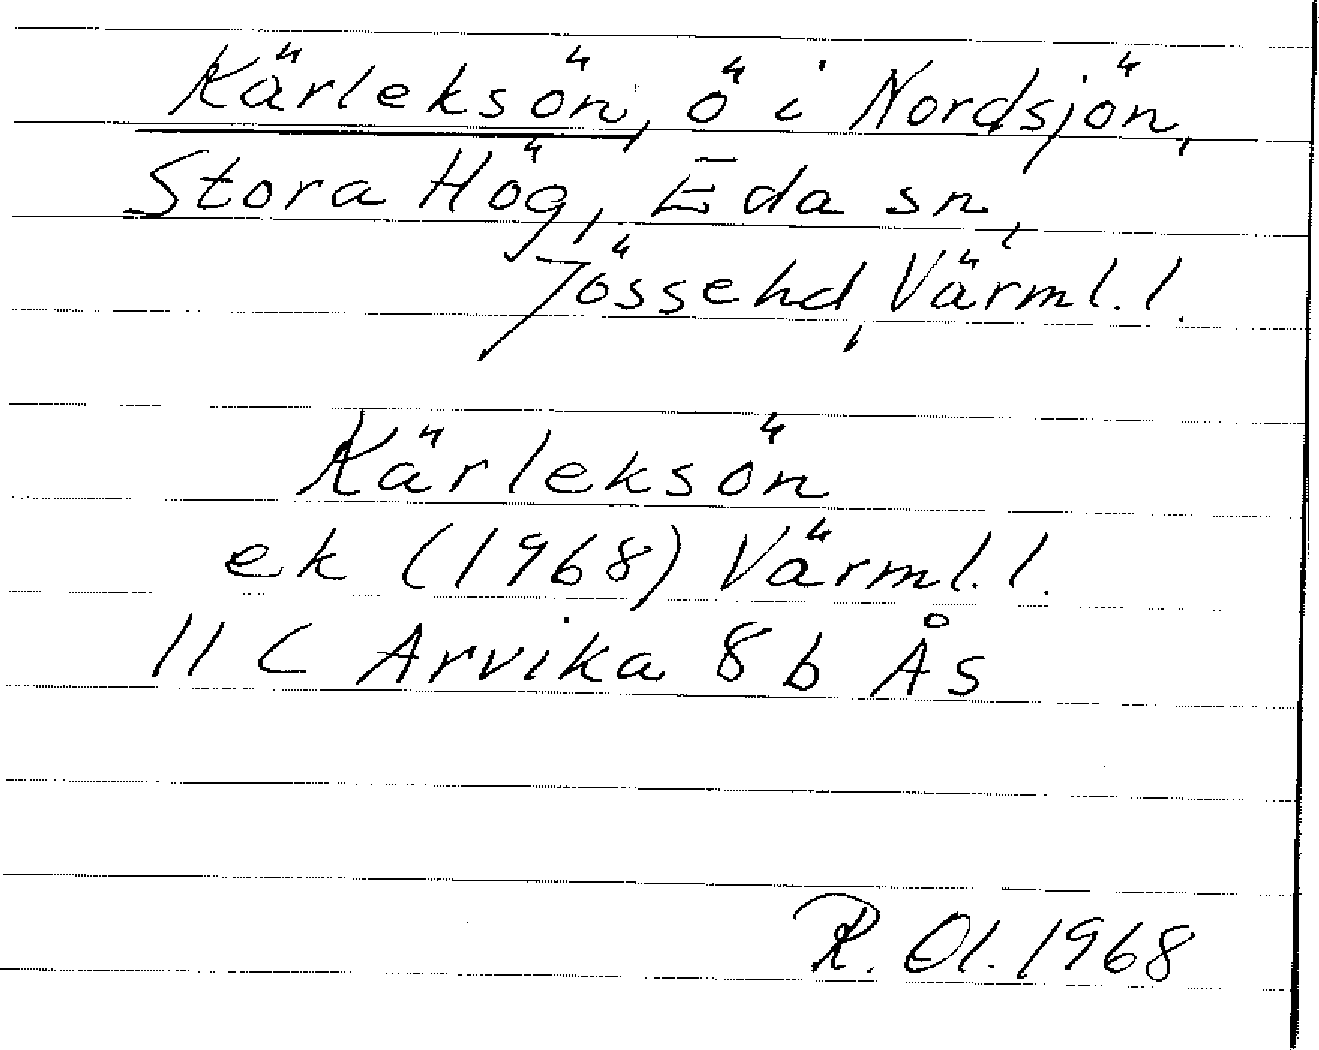 Kärleksön, ö i Nordsjön,
Stora Hög, Eda sn,
Jössehd, Värml. l.
Kärleksön
ek (1968) Värml. l.
11 C Arvika 8 b Ås
R. Ol. 1968